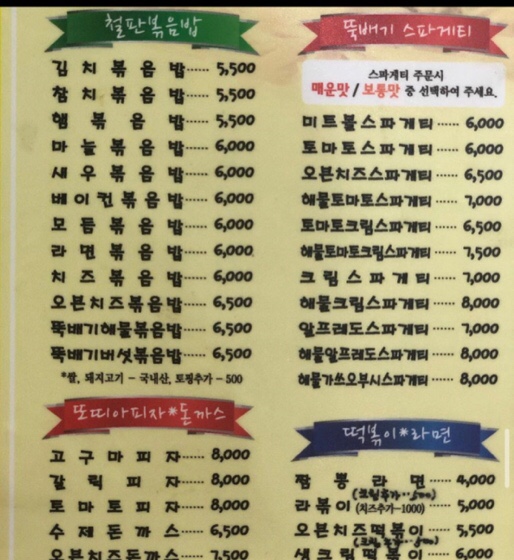 철판볶음밥
김치볶음밥······ 5,500
참치볶음밥······ 5,500
햄볶음밥······ 5,500
마늘볶음밥······ 6,000
새우볶음밥······ 6,000
베이컨볶음밥······ 6,000
모듬볶음밥······ 6,000
라면볶음밥······ 6,000
치즈볶음밥······ 6,000
오븐치즈볶음밥······ 6,500
뚝배기해물볶음밥······ 6,500
뚝배기버섯볶음밥······ 6,500
*쌀, 돼지고기 - 국내산, 토핑추가 - 500
또띠아피자*돈까스
고구마피자······ 8,000
갈릭피자······ 8,000
토마토피자······ 8,000
수제돈까스······ 6,500
오븐치즈돈까스······ 7,500
뚝배기 스파게티
스파게티 주문시
매운맛 / 보통맛 중 선택하여 주세요.
미트볼스파게티······ 6,000
토마토스파게티······ 6,000
오븐치즈스파게티······ 6,500
해물토마토스파게티······ 7,000
토마토크림스파게티······ 6,500
해물토마토크림스파게티······ 7,500
크림스파게티······ 7,000
해물크림스파게티······ 8,000
알프레도스파게티······ 7,000
해물알프레도스파게티······ 8,000
해물가쓰오부시스파게티······ 8,000
떡볶이*라면
짬뽕라면······ 4,000
(크림추가··500)
라볶이(치즈추가-1000)······ 5,000
오븐치즈떡볶이······ 5,500
(크림추가··500)
생크림떡볶이······ 6,000